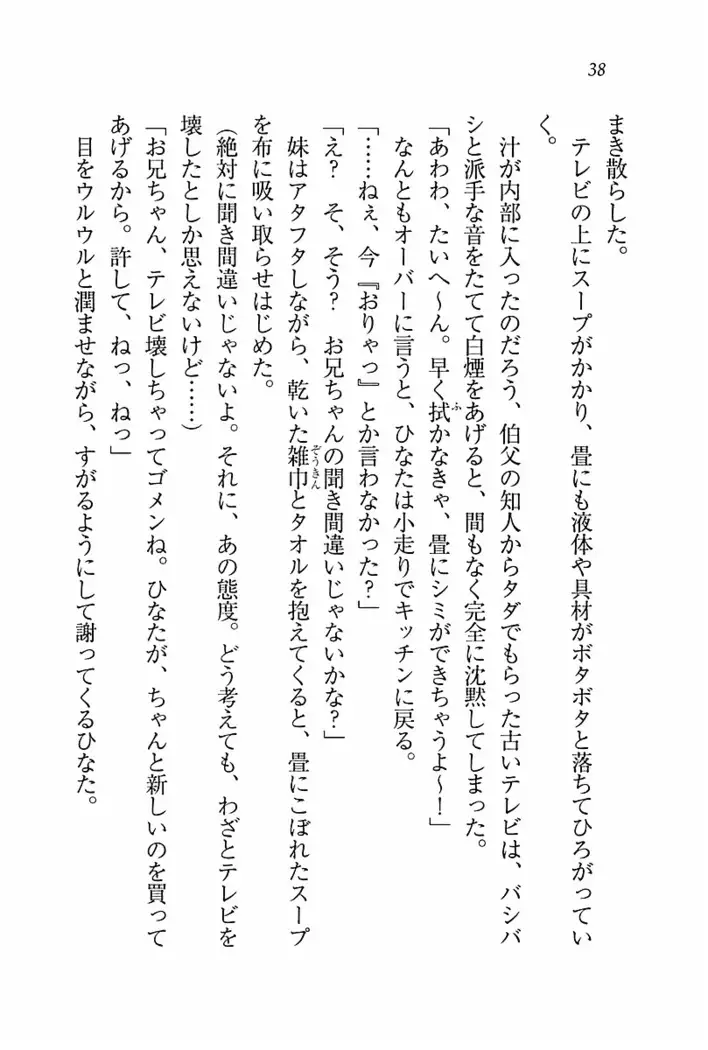 38
まき散らした。
テレビの上にスープがかかり、畳にも液体や具材がボタボタと落ちてひろがってい
く。
汁が内部に入ったのだろう、伯父の知人からタダでもらった古いテレビは、バシバ
シと派手な音をたてて白煙をあげると、間もなく完全に沈黙してしまった。
「あわわ、たいへ〜ん。早く拭かなきゃ、畳にシミができちゃうよ〜！」
なんともオーバーに言うと、ひなたは小走りでキッチンに戻る。
「……ねぇ、今『おりゃっ』とか言わなかった？」
「え？　そ、そう？　お兄ちゃんの聞き間違いじゃないかな？」
妹はアタフタしながら、乾いた雑巾とタオルを抱えてくると、畳にこぼれたスープ
を布に吸い取らせはじめた。
（絶対に聞き間違いじゃないよ。それに、あの態度。どう考えても、わざとテレビを
壊したとしか思えないけど……）
「お兄ちゃん、テレビ壊しちゃってゴメンね。ひなたが、ちゃんと新しいのを買って
あげるから。許して、ねっ、ねっ」
目をウルウルと潤ませながら、すがるようにして謝ってくるひなた。